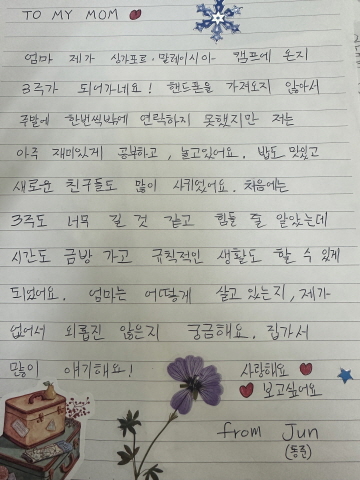 TO MY MOM
엄마 제가 싱가포르·말레이시아 캠프에 온지
3주가 되어가네요! 핸드폰을 가져오지 않아서
주말에 한번씩밖에 연락하지 못했지만 저는
아주 재미있게 공부하고, 놀고있어요. 밥도 맛있고
새로운 친구들도 많이 사귀었어요. 처음에는
3주도 너무 길 것 같고 힘들 줄 알았는데
시간도 금방 가고 규칙적인 생활도 할 수 있게
되었어요. 엄마는 어떻게 살고 있는지, 제가
없어서 외롭진 않은지 궁금해요. 집가서
많이 얘기해요!
사랑해요
보고싶어요
from Jun
(동준)